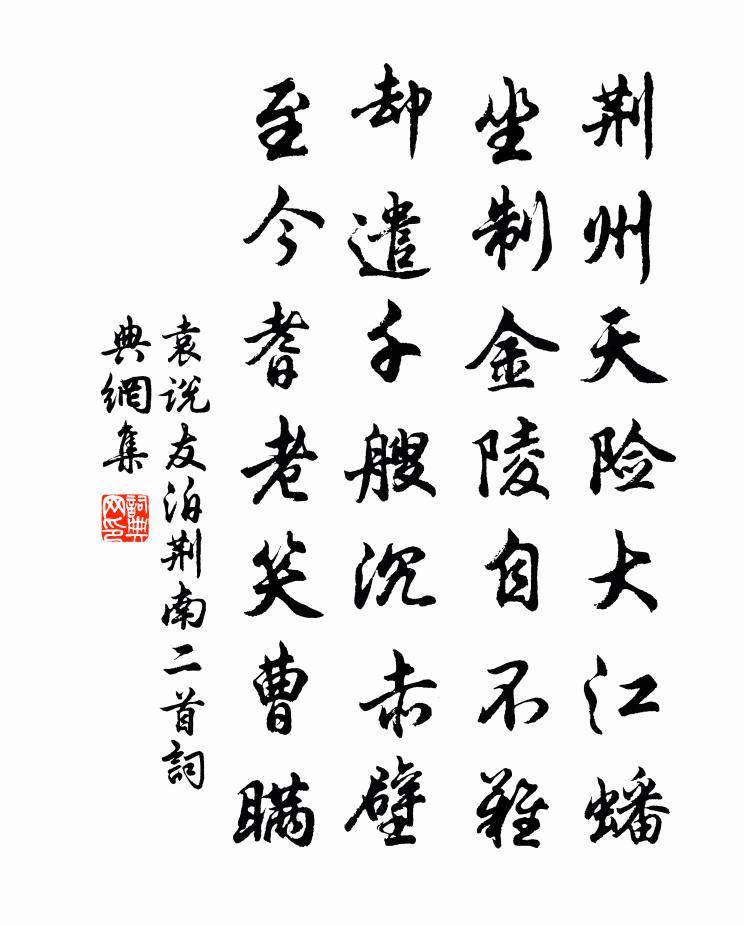 荆州天险大江蟠
坐制金陵自不难
却遣千艘沉赤壁
至今耆老笑曹瞒
袁说友泊荆南二首詞
典網集
詞典
网印